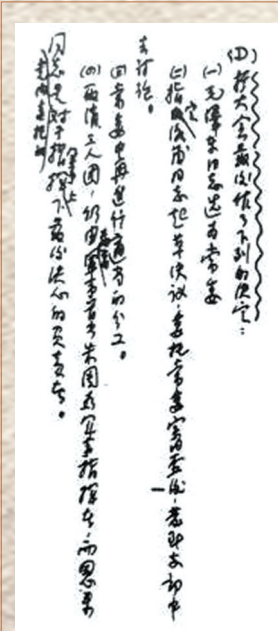 (D)扩大会最后作了下列的决定：
(一)毛澤东同志选为常委
(二)指定洛甫同志起草决议，委托常委审查后，发到支部中
去讨论。
(三)常委中再进行适当的分工。
(四)取消三人团，仍由最高軍事首长朱周为軍事指揮者，而恩来
同志是党内委托的对于指揮軍事上下最后决心的负责者。